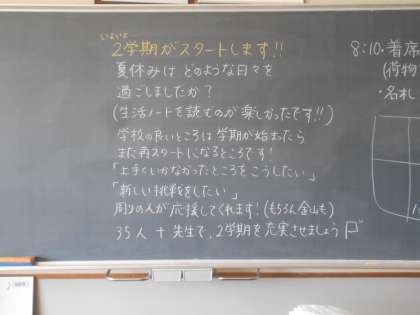 いよいよ
2学期がスタートします!!
夏休みは どのような日々を
過ごしましたか?
(生活ノートを読むのが楽しかったです!!)
学校の良いところは学期が始まったら
また再スタートになるところです!
「上手くいかなかったところをこうしたい」
「新しい挑戦をしたい」
周りの人が応援してくれます!(もちろん金山も)
35人+先生で、2学期を充実させましょう
8:10・着席
(荷物
・名札